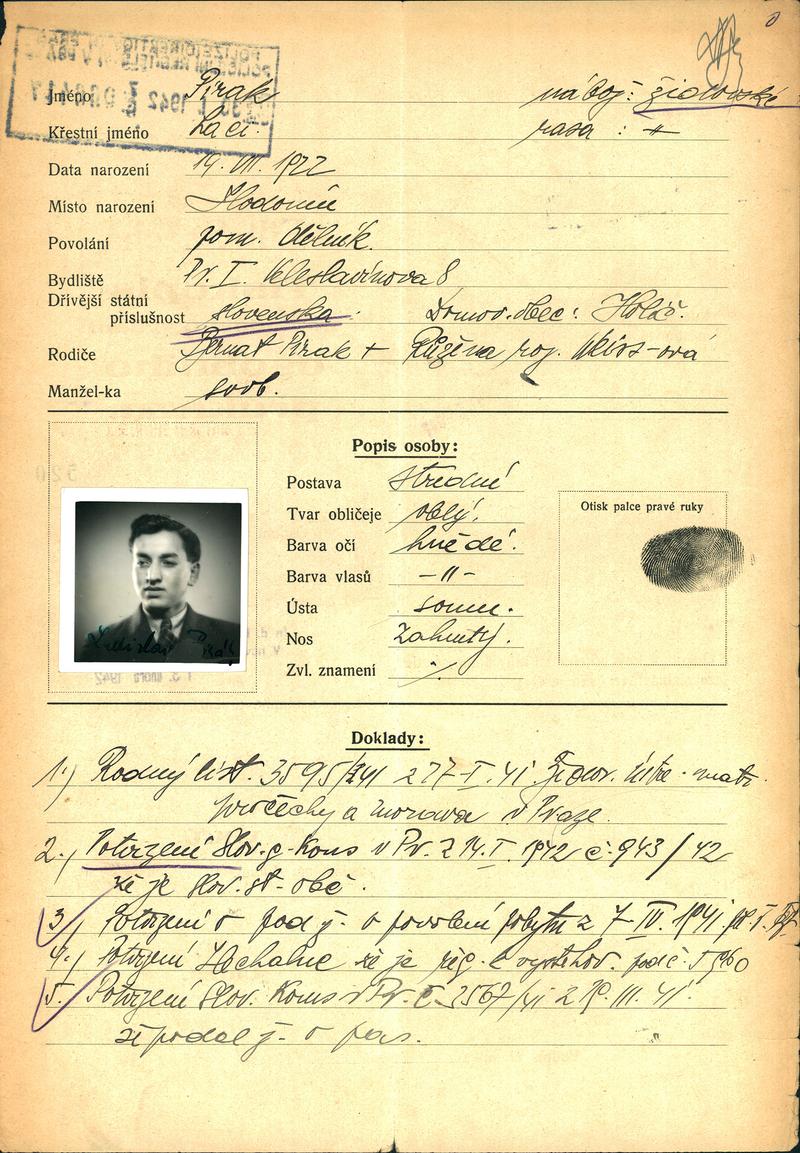 Jméno Pirak nábož: židovské
Křestní jméno Laci. rasa : –〃–
Data narození 19. VII. 1922
Místo narození Hodonín
Povolání pom. dělník.
Bydliště Pr. I. Veleslavínova 8
Dřívější státní
příslušnost slovenska. Domov. obec: Holíč.
Rodiče Bernat Pirak + Růžena roz.
Manžel-ka svob.
Popis osoby:
Postava střední
Tvar obličeje oblý.
Barva očí hnědé.
Barva vlasů –〃–
Ústa soum.
Nos zahnutý.
Zvl. znamení ⁒
Otisk palce pravé ruky
Ladislav Pirák
Doklady:
1.) Rodný list. 3595/41 z 27–I. 41 Židov. ústř. matr.
pro Čechy a Moravu v Praze.
2.) Potvrzení Slov. g. Kons v Pr. z 14. I. 1942 č. 943/42
že je slov. st. obč.
3.) Potvrzení o pod. ž. o povolení pobytu z 7–IV. 1941
4.) Potvrzení že je reg. k vystěhov. pod č.
5. Potvrzení Slov. Kons v Pr. č 3567/41 z III. 41.
že podal ž. o pas.